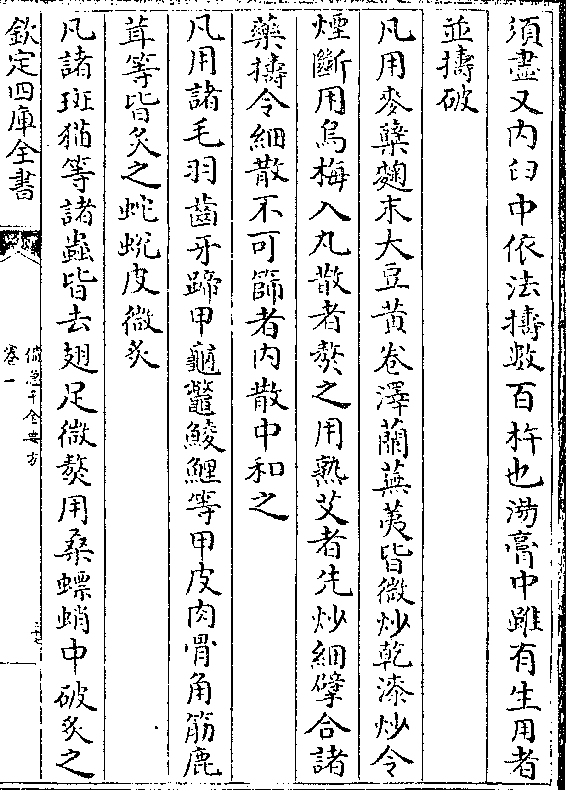 須盡又内臼中依法擣數百杵也湯膏中雖有生用者
並擣破
凡用麥糵麴末大豆黄卷澤蘭蕪荑皆微炒乾漆炒令
煙斷用烏梅入丸散者熬之用熟艾者先炒細擘合諸
藥擣令細散不可篩者内散中和之
凡用諸毛羽齒牙蹄甲龜鼈鯪鯉等甲皮肉骨角筋鹿
茸等皆炙之蛇蛻皮微炙
凡諸斑猫等諸蟲皆去翅足微熬用桑螵蛸中破炙之
欽定四庫全書
備急千金要方
卷一